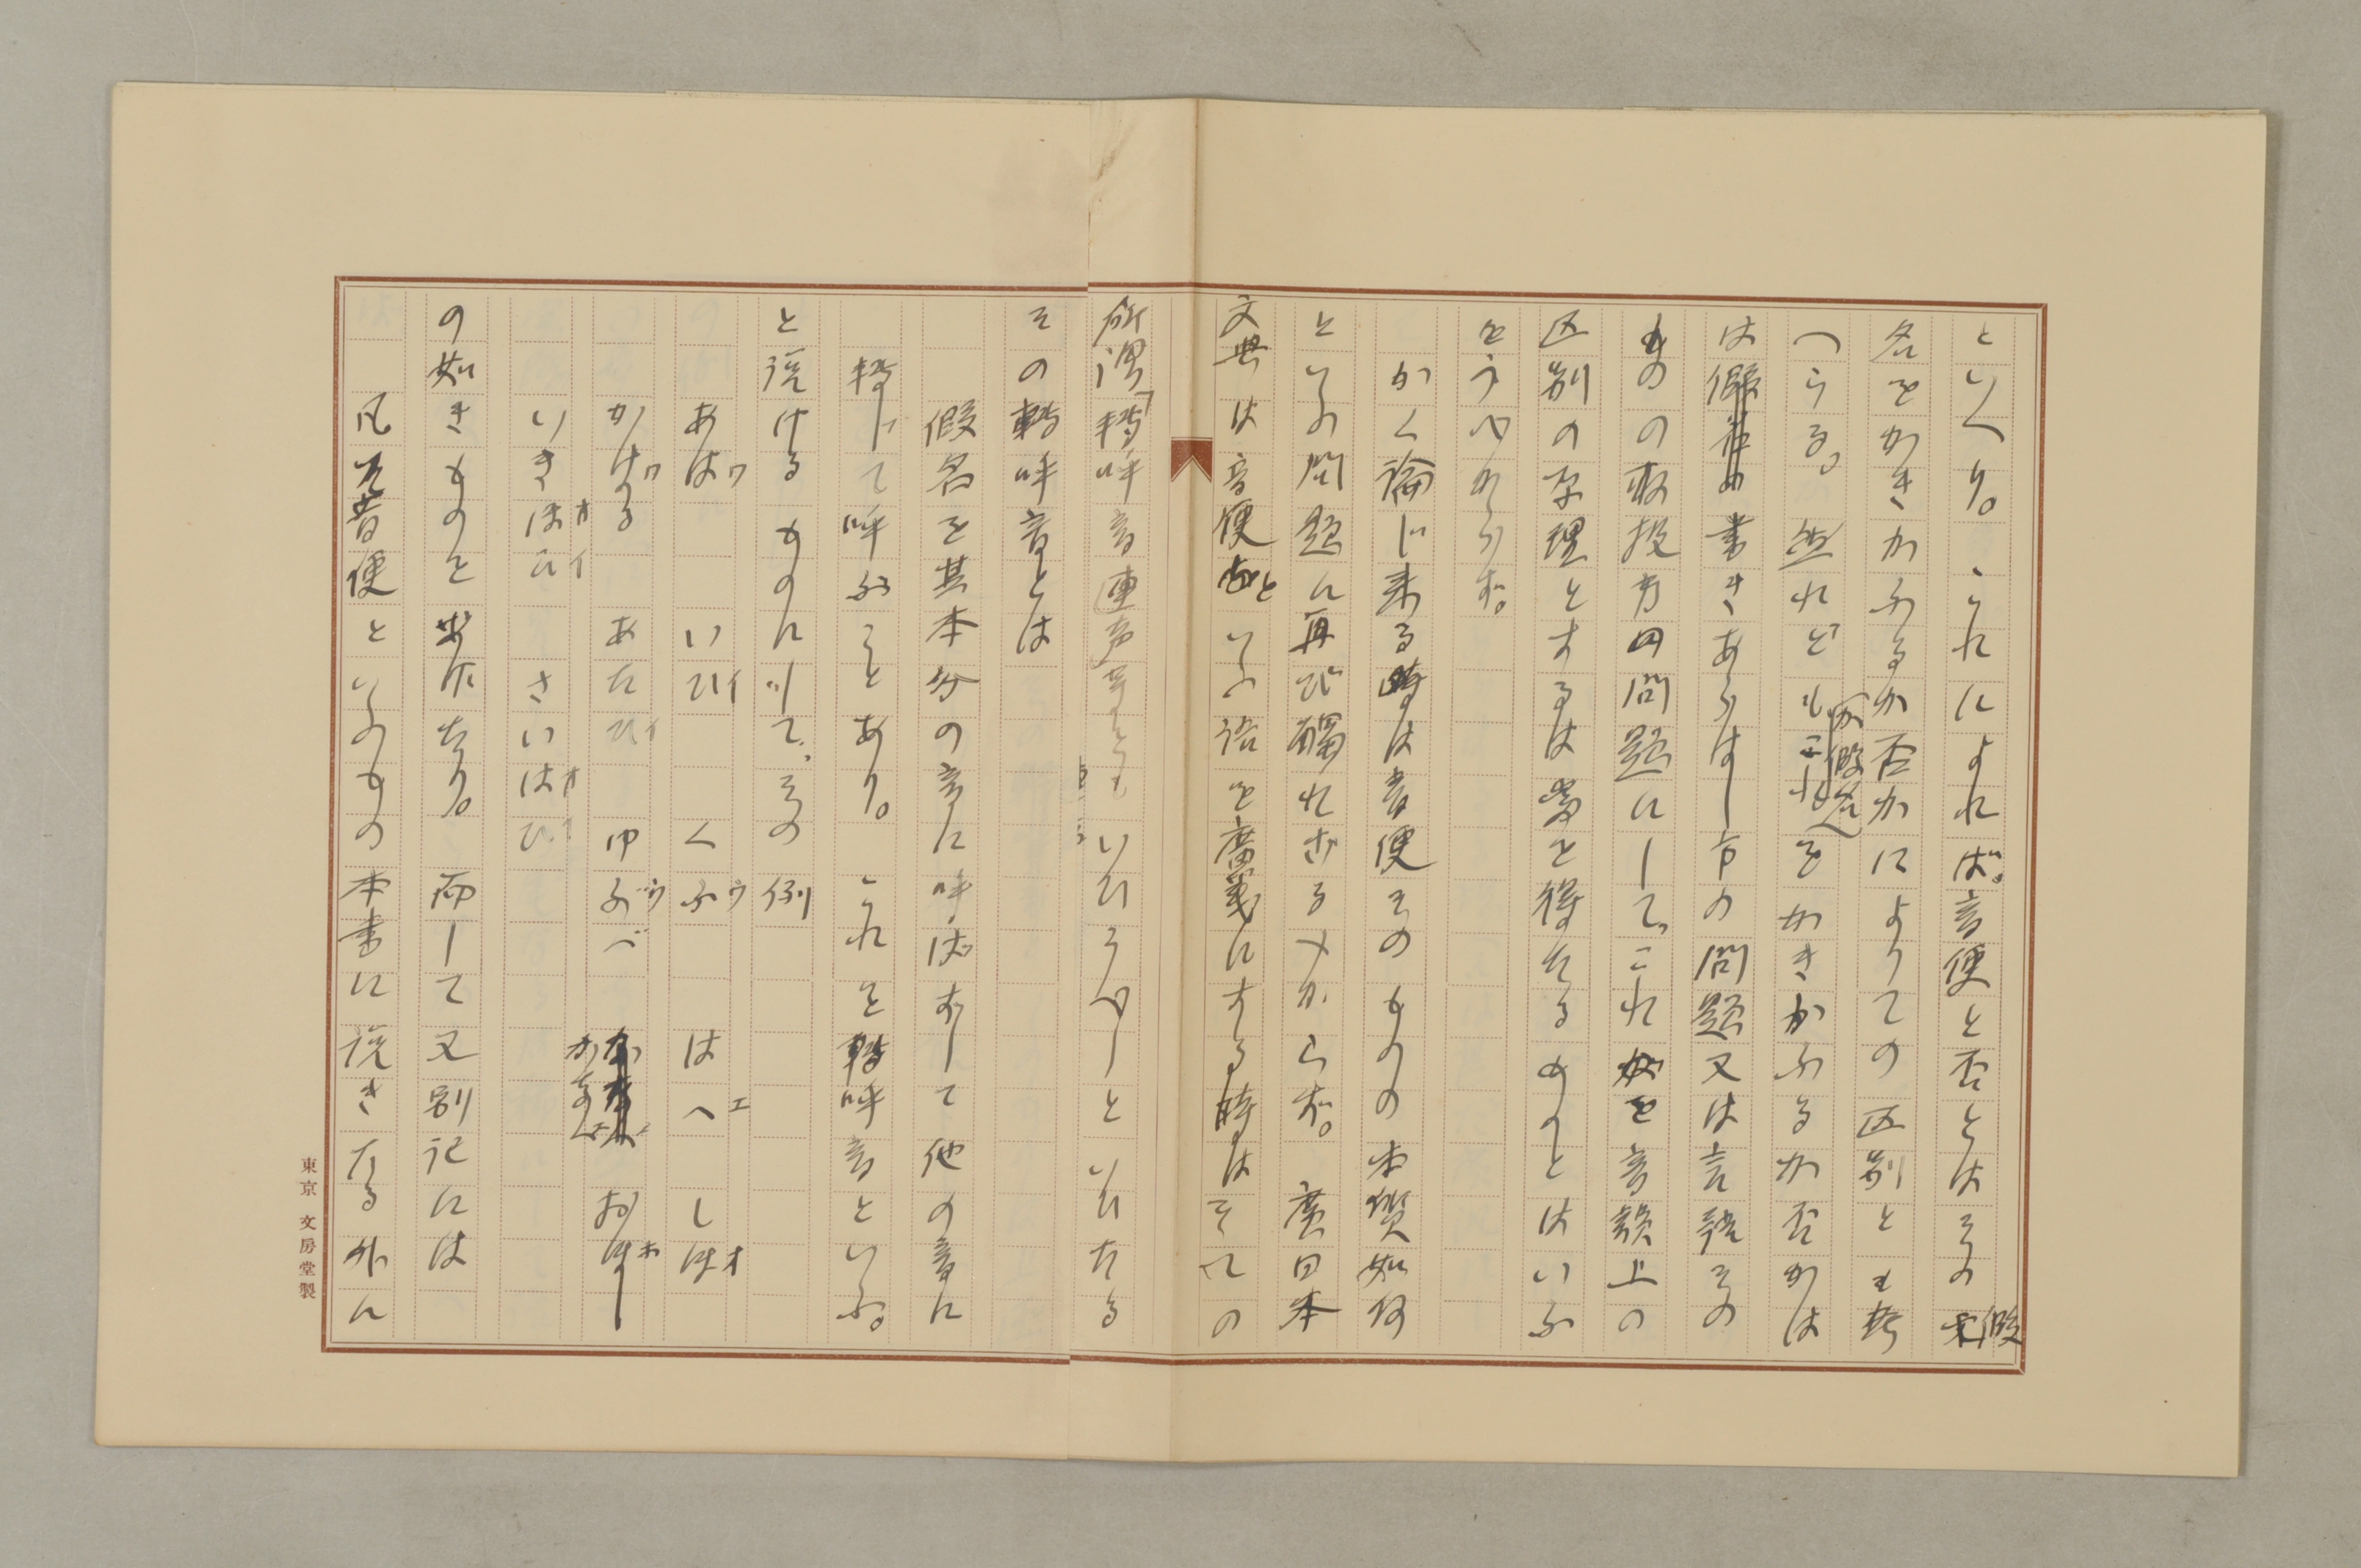 といへり。これによれば、音便と否とはその假
名をかきかふるか否かによりての区別とも考
へらる。然れども、假名をかきかふるか否かは
は書きあらはし方の問題又は言語その
ものの取扱方の問題にして、これを音韻上の
区別の原理とするは當を得たるものとはいふ
をうべからず。
かく論じ来る時は音便そのものの本質如何
といふ問題に再び觸れざるべからず。廣日本
文典は音便といふ語を廣義にする時はすべての
所謂「轉呼音、連声等とも、いひうべしといひたる
その轉呼音とは
假名を其本分の音に呼ばずして他の音に
轉じて呼ぶことあり。これを轉呼音といふ。
と説けるものにして、その例
あはワ いひイ くふウ はへエ しほオ
かはワる あたひイ ゆふウべ かなへエ おほオし
いきほオひイ さいはオひイ
の如きものを出せり。而して又別記には
凡そ音便といふもの本書に説きたる外に
東京 文房堂製